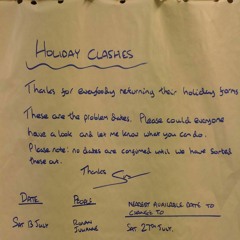 HOLIDAY CLASHES
Thanks for everybody returning their holiday forms
These are the problem dates. Please could everyone
have a look and let me know what you can do.
Please note: no dates are confirmed until we have sorted
these out.
Thanks
DATE PEOPLE NEAREST AVAILABLE DATE TO
CHANGE TO
SAT 13 JULY SAT 27TH JULY.